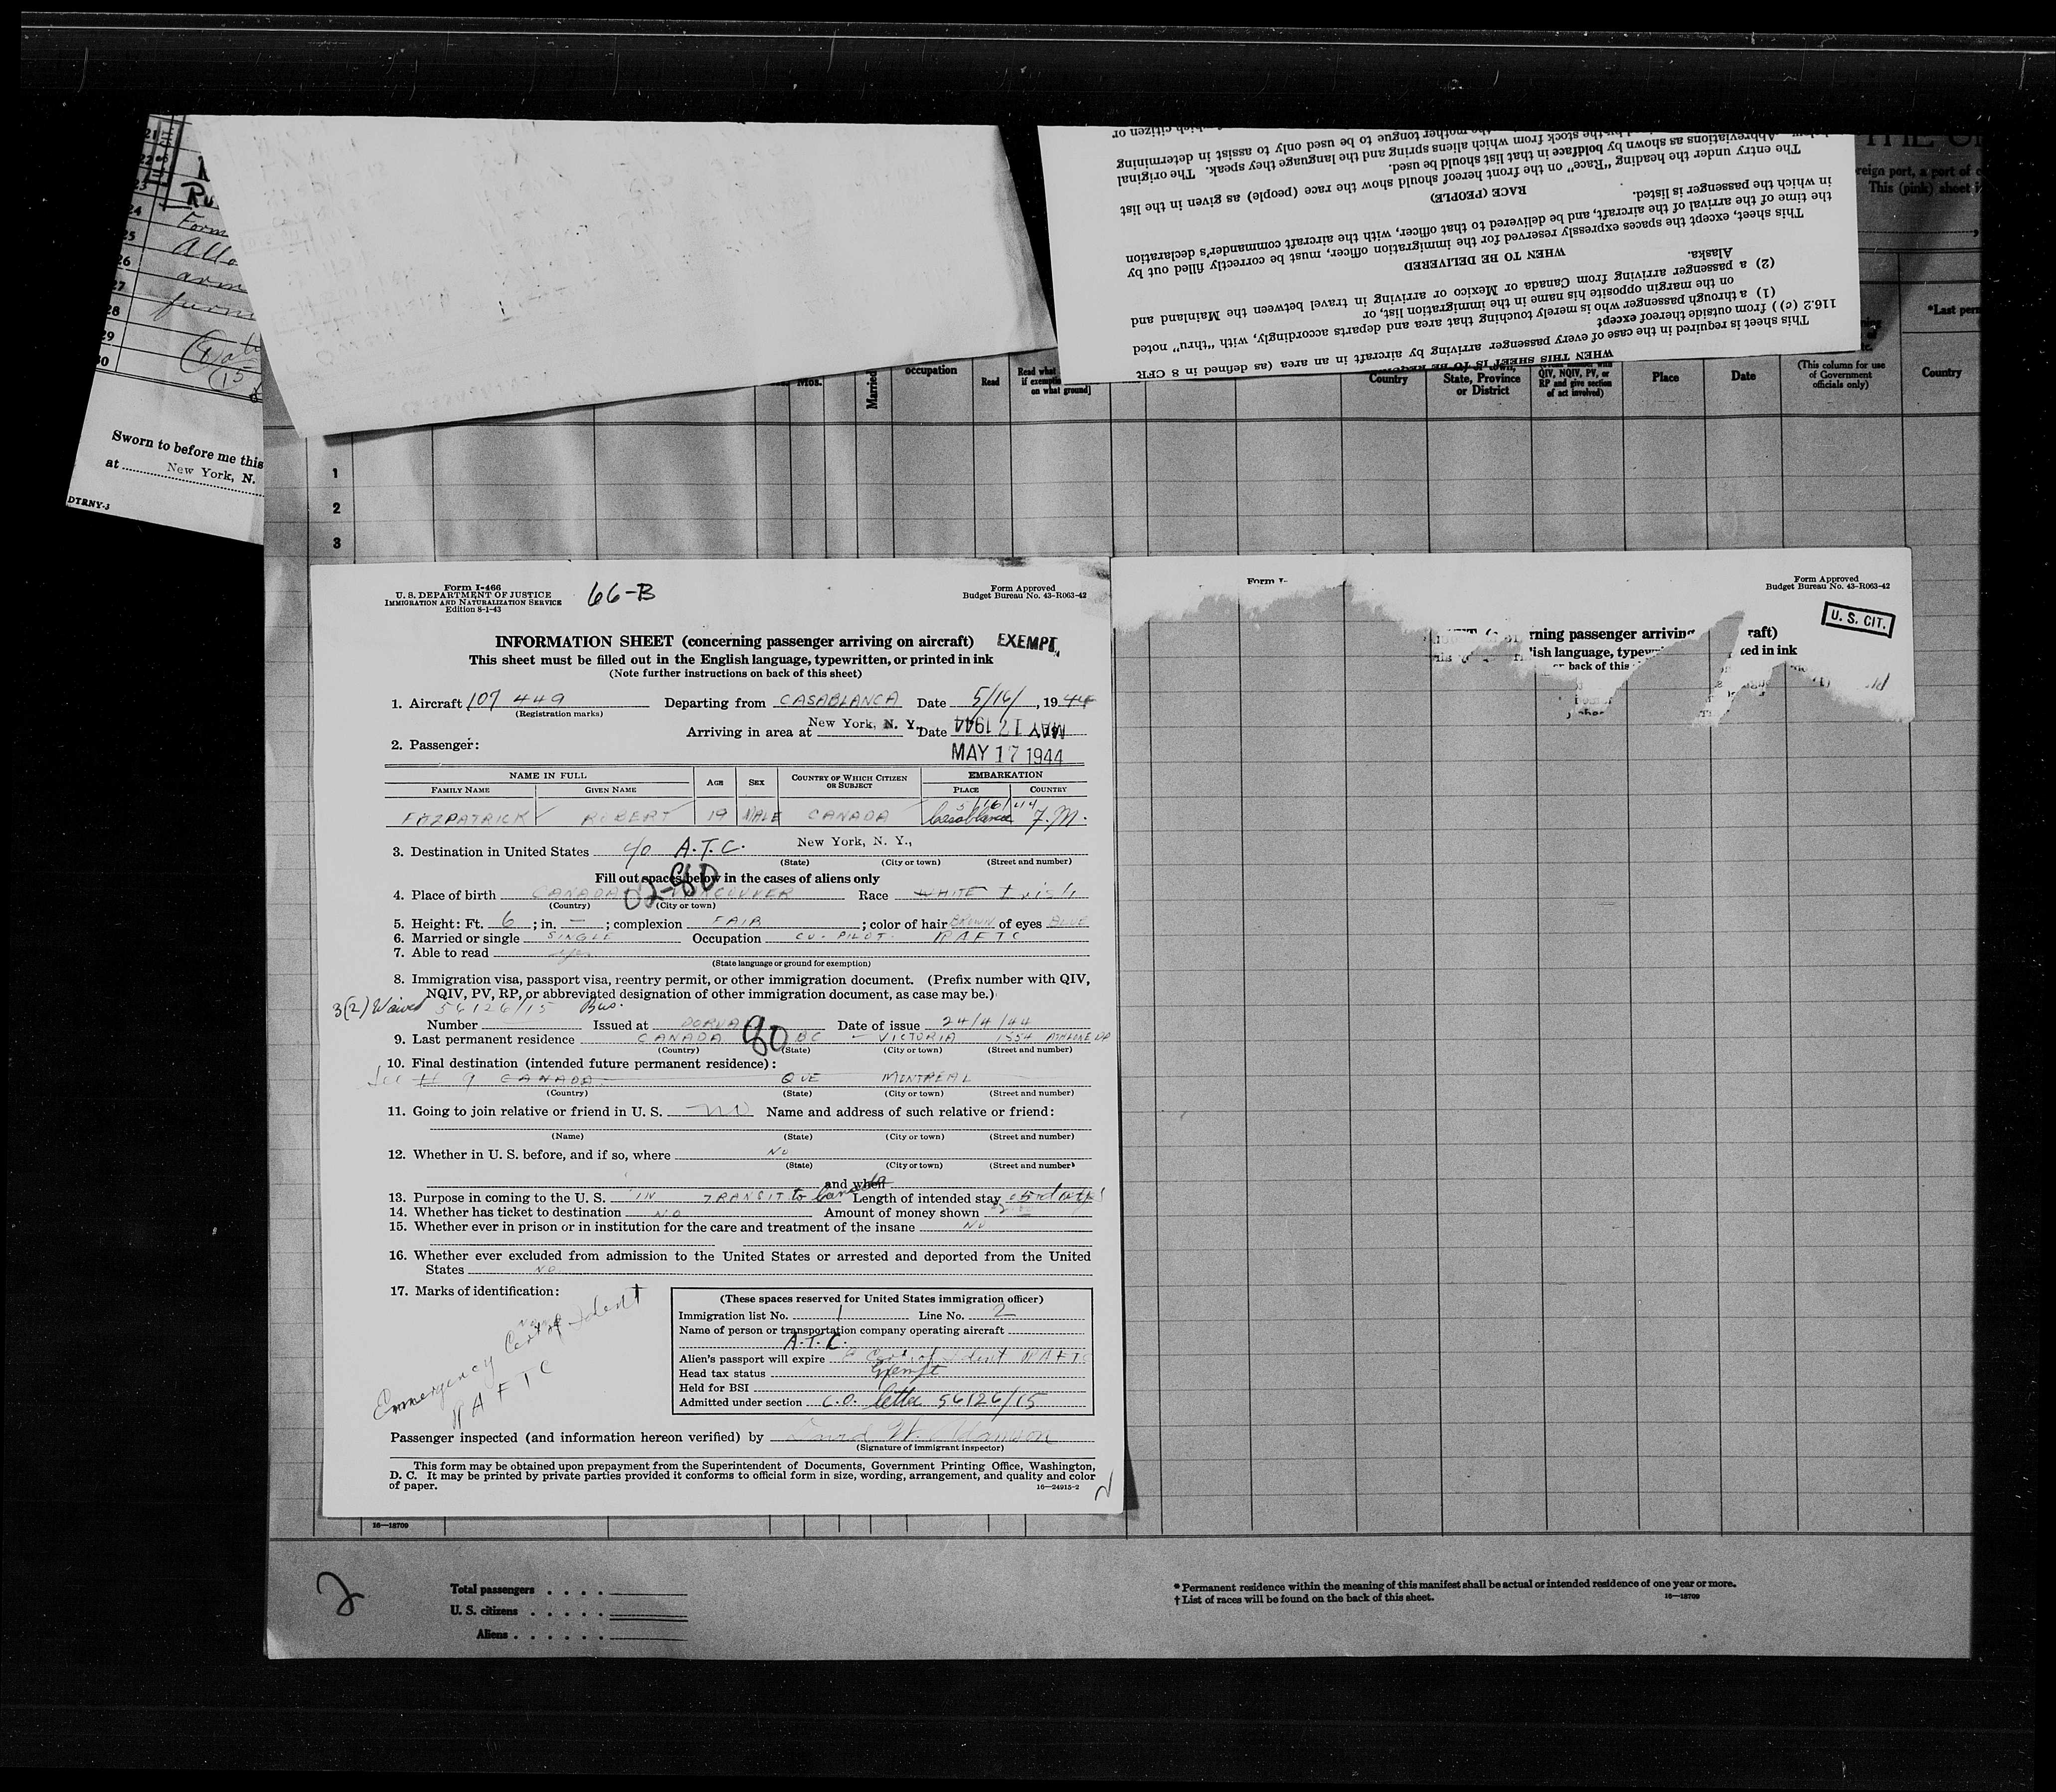 21
22
23
24
25
26
27
28
29
30
Form
Allo
arm
furni
Sworn to before me this
at New York, N.
DTRNY-3
WHEN THIS SHEET IS TO BE
This sheet is required in the case of every passenger arriving by aircraft in an area (as defined in 8 CFR
116.2 (c)) from outside thereof except
(1) a through passenger who is merely touching that area and departs accordingly, with "thru" noted
on the margin opposite his name in the immigration list, or
(2) a passenger arriving from Canada or Mexico or arriving in travel between the Mainland and
Alaska.
WHEN TO BE DELIVERED
This sheet, except the spaces expressly reserved for the immigration officer, must be correctly filled out by
the time of the arrival of the aircraft, and be delivered to that officer, with the aircraft commander's declaration
in which the passenger is listed.
RACE (PEOPLE)
The entry under the heading "Race" on the front hereof should show the race (people) as given in the list
Abbreviations as shown by boldface in that list should be used.
the stock from which aliens spring and the language they speak. The original
mother tongue to be used only to assist in determining
which citizen or
reign port, a port of
This (pink) sheet
*Last perm
Mos.
Married
occupation
Read
Read what
if exemption
on what ground]
Country
State, Province
or District
QIV, NQIV, PV, or
RP and give section
of act involved)
Place
Date
(This column for use
of Government
officials only)
Country
1
2
3
Form I-466
U. S. DEPARTMENT OF JUSTICE
IMMIGRATION AND NATURALIZATION SERVICE
Edition 8-1-43
66-B
Form Approved
Budget Bureau No. 43-R063-42
INFORMATION SHEET (concerning passenger arriving on aircraft) EXEMPT
This sheet must be filled out in the English language, typewritten, or printed in ink
(Note further instructions on back of this sheet)
1. Aircraft 107 449 Departing from CASABLANCA Date 5/16/, 1944
(Registration marks)
Arriving in area at New York, N. Y. Date MAY 17 1944
2. Passenger: MAY 17 1944
NAME IN FULL AGE SEX COUNTRY OF WHICH CITIZEN OR SUBJECT EMBARKATION
FAMILY NAME GIVEN NAME PLACE COUNTRY
5/16/44
FITZPATRICK ROBERT 19 MALE CANADA Casablanca F.M.
3. Destination in United States c/o A.T.C. New York, N. Y.,
(State) (City or town) (Street and number)
Fill out spaces below in the cases of aliens only
02-80
4. Place of birth CANADA VANCOUVER Race WHITE Irish
(Country) (City or town)
5. Height: Ft. 6; in. —; complexion FAIR; color of hair BROWN of eyes BLUE
6. Married or single SINGLE Occupation CO. PILOT. RAFTC
7. Able to read yes
(State language or ground for exemption)
8. Immigration visa, passport visa, reentry permit, or other immigration document. (Prefix number with QIV,
NQIV, PV, RP, or abbreviated designation of other immigration document, as case may be.)
3(2) Waived 56126/15 Bus.
Number Issued at DORVAL Date of issue 24/4/44
9. Last permanent residence CANADA 80 BC – VICTORIA 1554 ATHLONE DR
(Country) (State) (City or town) (Street and number)
10. Final destination (intended future permanent residence):
See # 9 CANADA QUE MONTREAL
(Country) (State) (City or town) (Street and number)
11. Going to join relative or friend in U. S. no Name and address of such relative or friend:
(Name) (State) (City or town) (Street and number)
12. Whether in U. S. before, and if so, where No
(State) (City or town) (Street and number)
and when
13. Purpose in coming to the U. S. IN TRANSIT to Canada Length of intended stay days
14. Whether has ticket to destination NO Amount of money shown
15. Whether ever in prison or in institution for the care and treatment of the insane NO
16. Whether ever excluded from admission to the United States or arrested and deported from the United
States NO
17. Marks of identification:
Emergency Cert of Ident
RAFTC
(These spaces reserved for United States immigration officer)
Immigration list No. 1 Line No. 2
Name of person or transportation company operating aircraft
A.T.C.
Alien's passport will expire E Cert of Ident RAFTC
Head tax status Exempt
Held for BSI
Admitted under section C.O. letter 56126/15
Passenger inspected (and information hereon verified) by David W. Adamson
(Signature of immigrant inspector)
This form may be obtained upon prepayment from the Superintendent of Documents, Government Printing Office, Washington,
D. C. It may be printed by private parties provided it conforms to official form in size, wording, arrangement, and quality and color
of paper.
16—24915-2
Form
Form Approved
Budget Bureau No. 43-R063-42
U. S. CIT.
rning passenger arriving raft)
ish language, typew ted in ink
back of this
16—18709
2
Total passengers . . . .
U. S. citizens . . . . .
Aliens . . . . . .
* Permanent residence within the meaning of this manifest shall be actual or intended residence of one year or more.
† List of races will be found on the back of this sheet.
16—18709